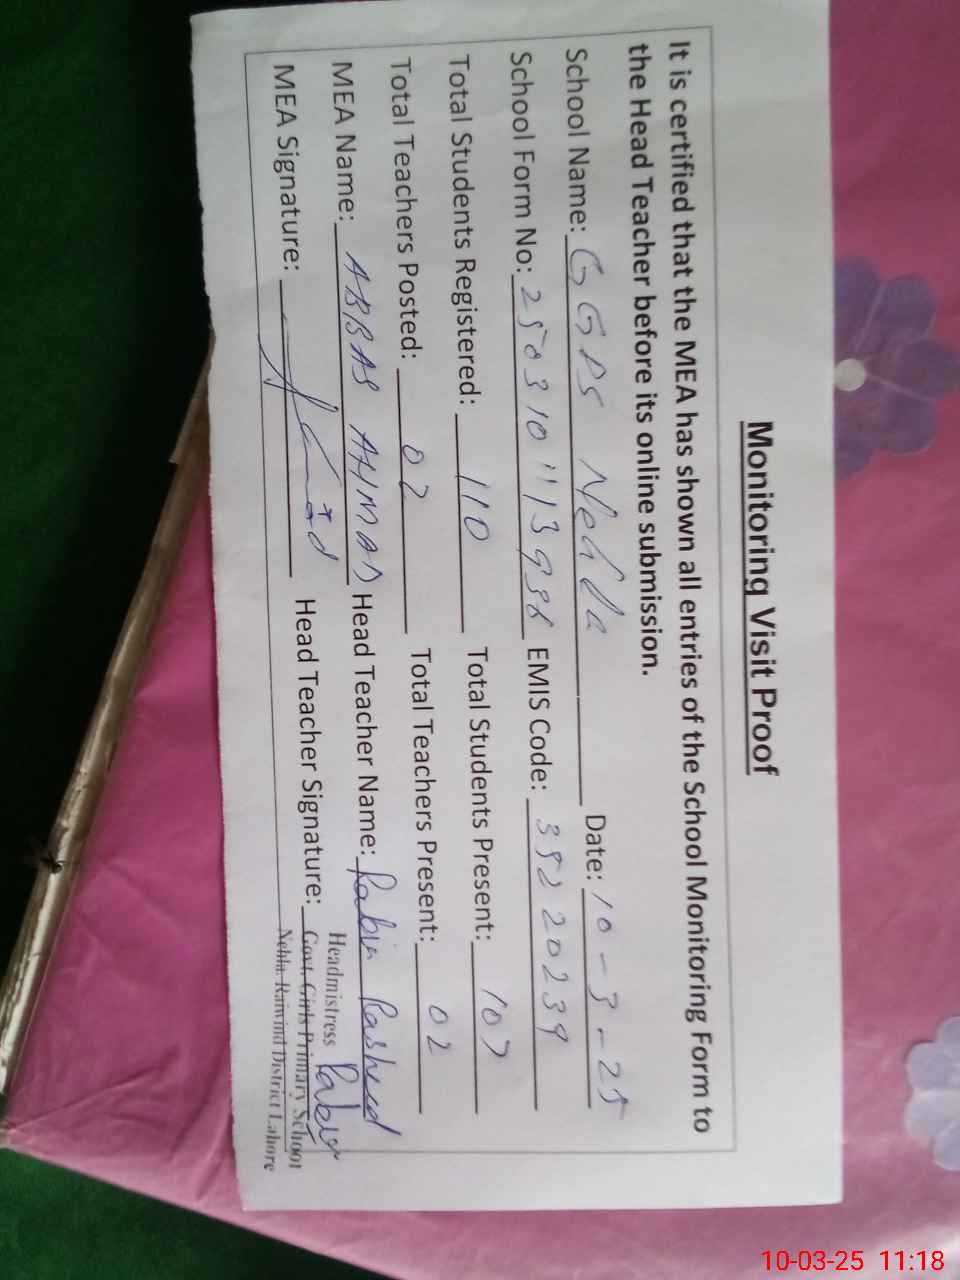 Monitoring Visit Proof
It is certified that the MEA has shown all entries of the School Monitoring Form to
the Head Teacher before its online submission.
School Name: GGPS Nehla Date: 10-3-25
School Form No: EMIS Code: 35220239
Total Students Registered: 110 Total Students Present: 107
Total Teachers Posted: 02 Total Teachers Present: 02
MEA Name: ABBAS AHMAD Head Teacher Name: Rabia Rasheed
MEA Signature: Head Teacher Signature: Rabia
Headmistress
Govt. Girls Primary School
Nehla. Raiwind District Lahore
10-03-25 11:18